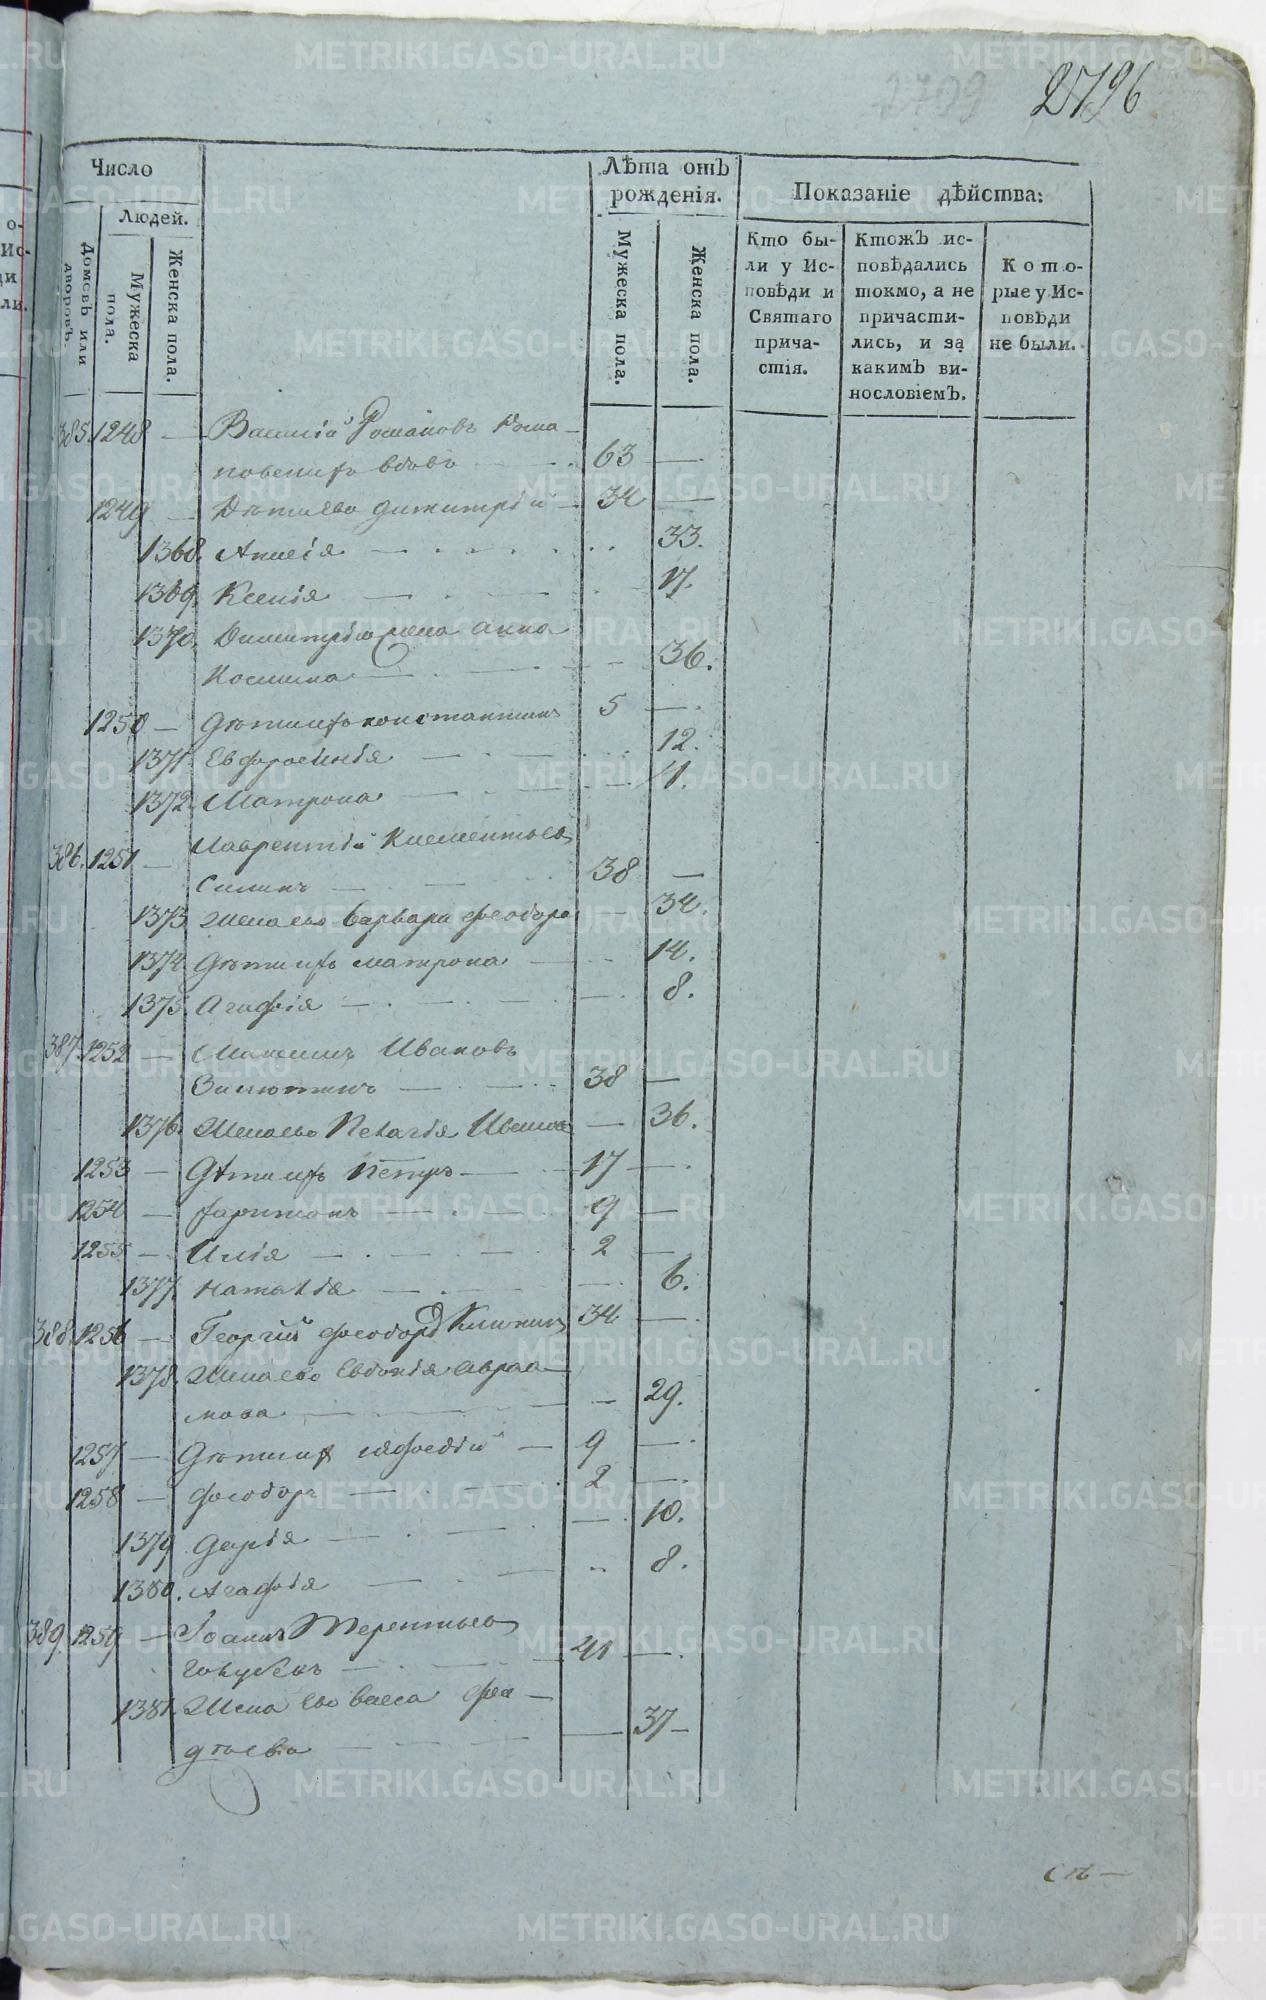 2709 2796
Число
Людей.
Домовъ или дворовъ.
Мужеска пола.
Женска пола.
Лѣта отъ рожденія.
Мужеска пола.
Женска пола.
Показаніе дѣйства:
Кто бы-
ли у Ис-
повѣди и
Святаго
прича-
стія.
Ктожъ ис-
повѣдались
токмо, а не
причасти-
лись, и за
какимъ ви-
нословіемъ.
Кото-
рые у Ис-
повѣди
не были.
385. 1248 — Василій Романовъ Рома-
новскихъ вдовъ 63 —
1249 — Дѣти его Димитрій 34 —
1368. Анисія 33.
1369. Ксенія 17.
1370. Димитрія жена Анна
Космина 36.
1250 — Дѣти ихъ Константинъ 5 —
1371 Евфросинія 12.
1372 Матрона
386. 1251 — Лаврентій Клементьевъ
Силинъ 38 —
1373 Жена его Варвара Феодоро 34.
1374 Дѣти ихъ Матрона 14.
1375. Агафія 8.
387. 1252 — Максимъ Ивановъ
38 —
1376. Жена его Пелагія Иванова — 36.
1253 — Дѣти ихъ Петръ 17 —
1254 — Харитонъ 9 —
1255 — Илія 2 —
1377. Наталія 6.
388. 1256 — Георгій Феодоровъ 34 —
1378. Жена его Евдокія Авраа-
мова 29.
1257 — Дѣти ихъ 9 —
1258 — Феодоръ 2 —
1379 Дарія 10.
1380. Агафія 8.
389. 1259 — Іоаннъ Терентьевъ
Голубевъ 41 —
1381. Жена его Васса Фад-
дѣева 37 —
METRIKI.GASO-URAL.RU